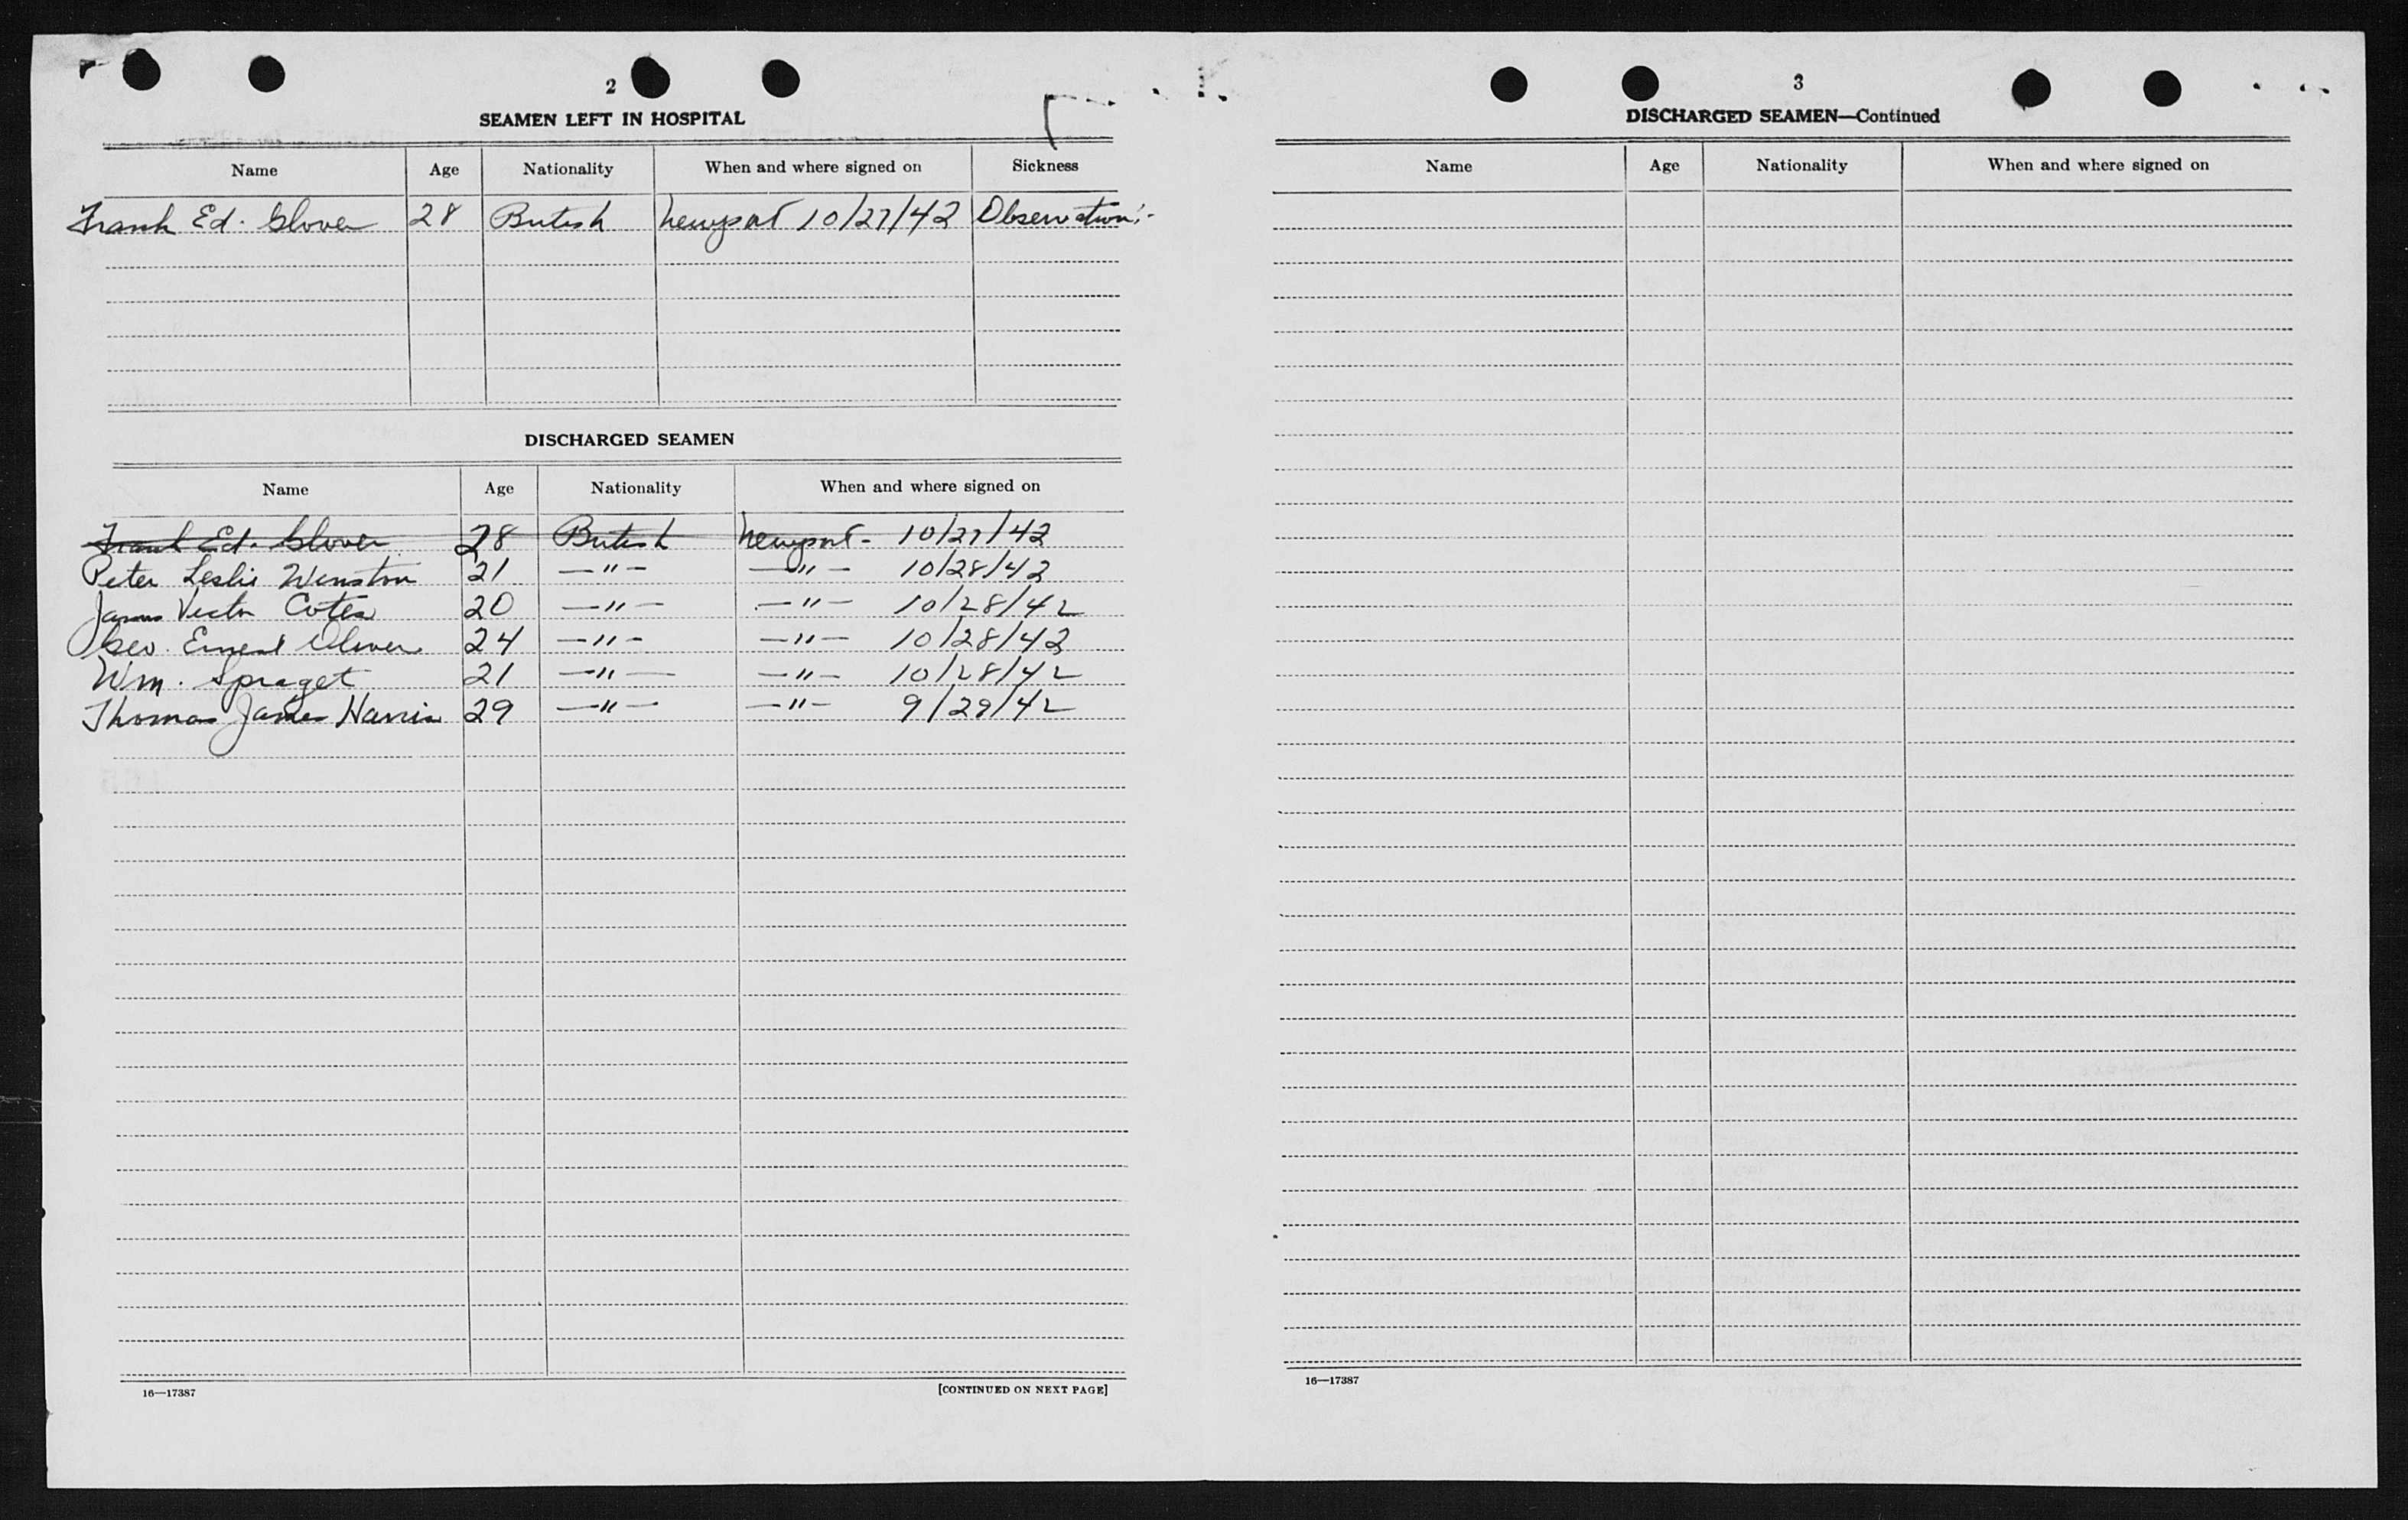 2
SEAMEN LEFT IN HOSPITAL
Name Age Nationality When and where signed on Sickness
Frank Ed. Glover 28 British Newport 10/27/42 Observation
DISCHARGED SEAMEN
Name Age Nationality When and where signed on
Frank Ed. Glover 28 British Newport - 10/27/42
Peter Leslie Winston 21 —"— —"— 10/28/42
James Victor Cotes 20 —"— —"— 10/28/42
Geo. Ernest Oliver 24 —"— —"— 10/28/42
Wm. Spraget 21 —"— —"— 10/28/42
Thomas James Harris 29 —"— —"— 9/29/42
16—17387 [CONTINUED ON NEXT PAGE]
3
DISCHARGED SEAMEN—Continued
Name Age Nationality When and where signed on
16—17387